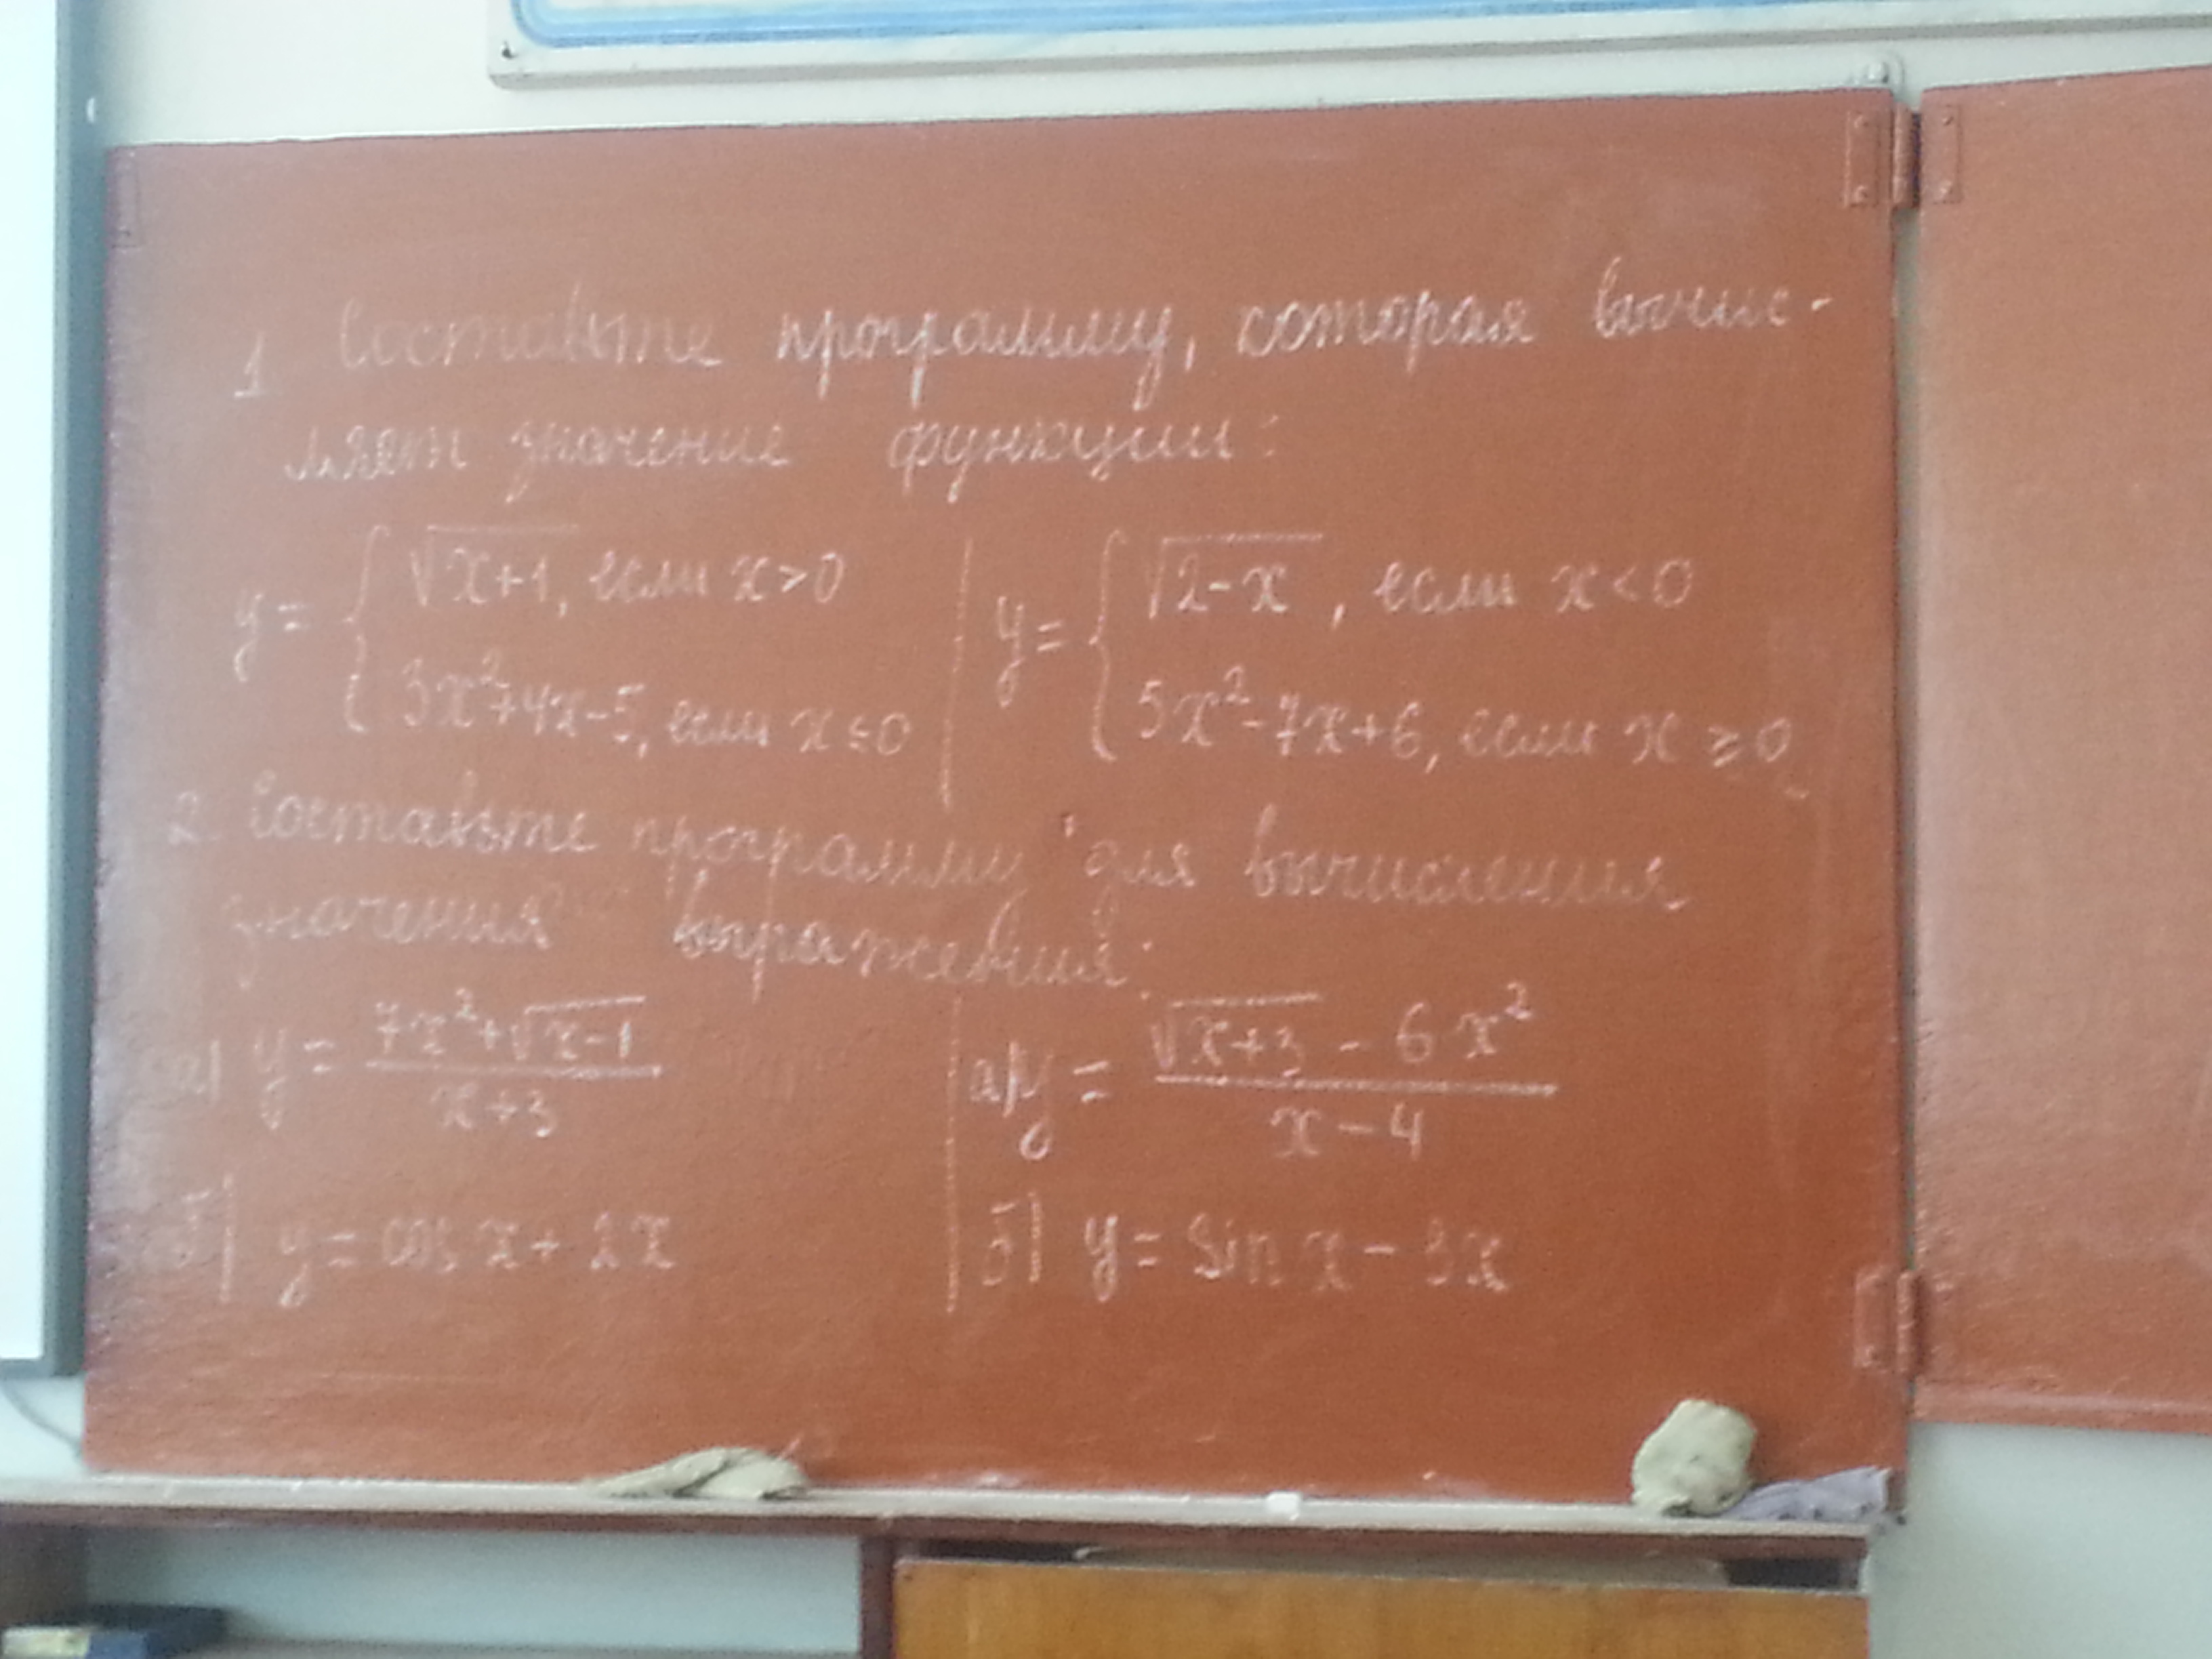 1 Составьте программу, которая вычис-
ляет значение функции:
y = { √(x+1), если x>0
3x²+4x-5, если x≤0
y = { √(2-x), если x<0
5x²-7x+6, если x≥0
2. Составьте программу для вычисления
значения выражения:
а) y = (7x²+√(x-1))/(x+3)
а) y = (√(x+3) - 6x²)/(x-4)
б) y = cos x + 2x
б) y = sin x - 3x